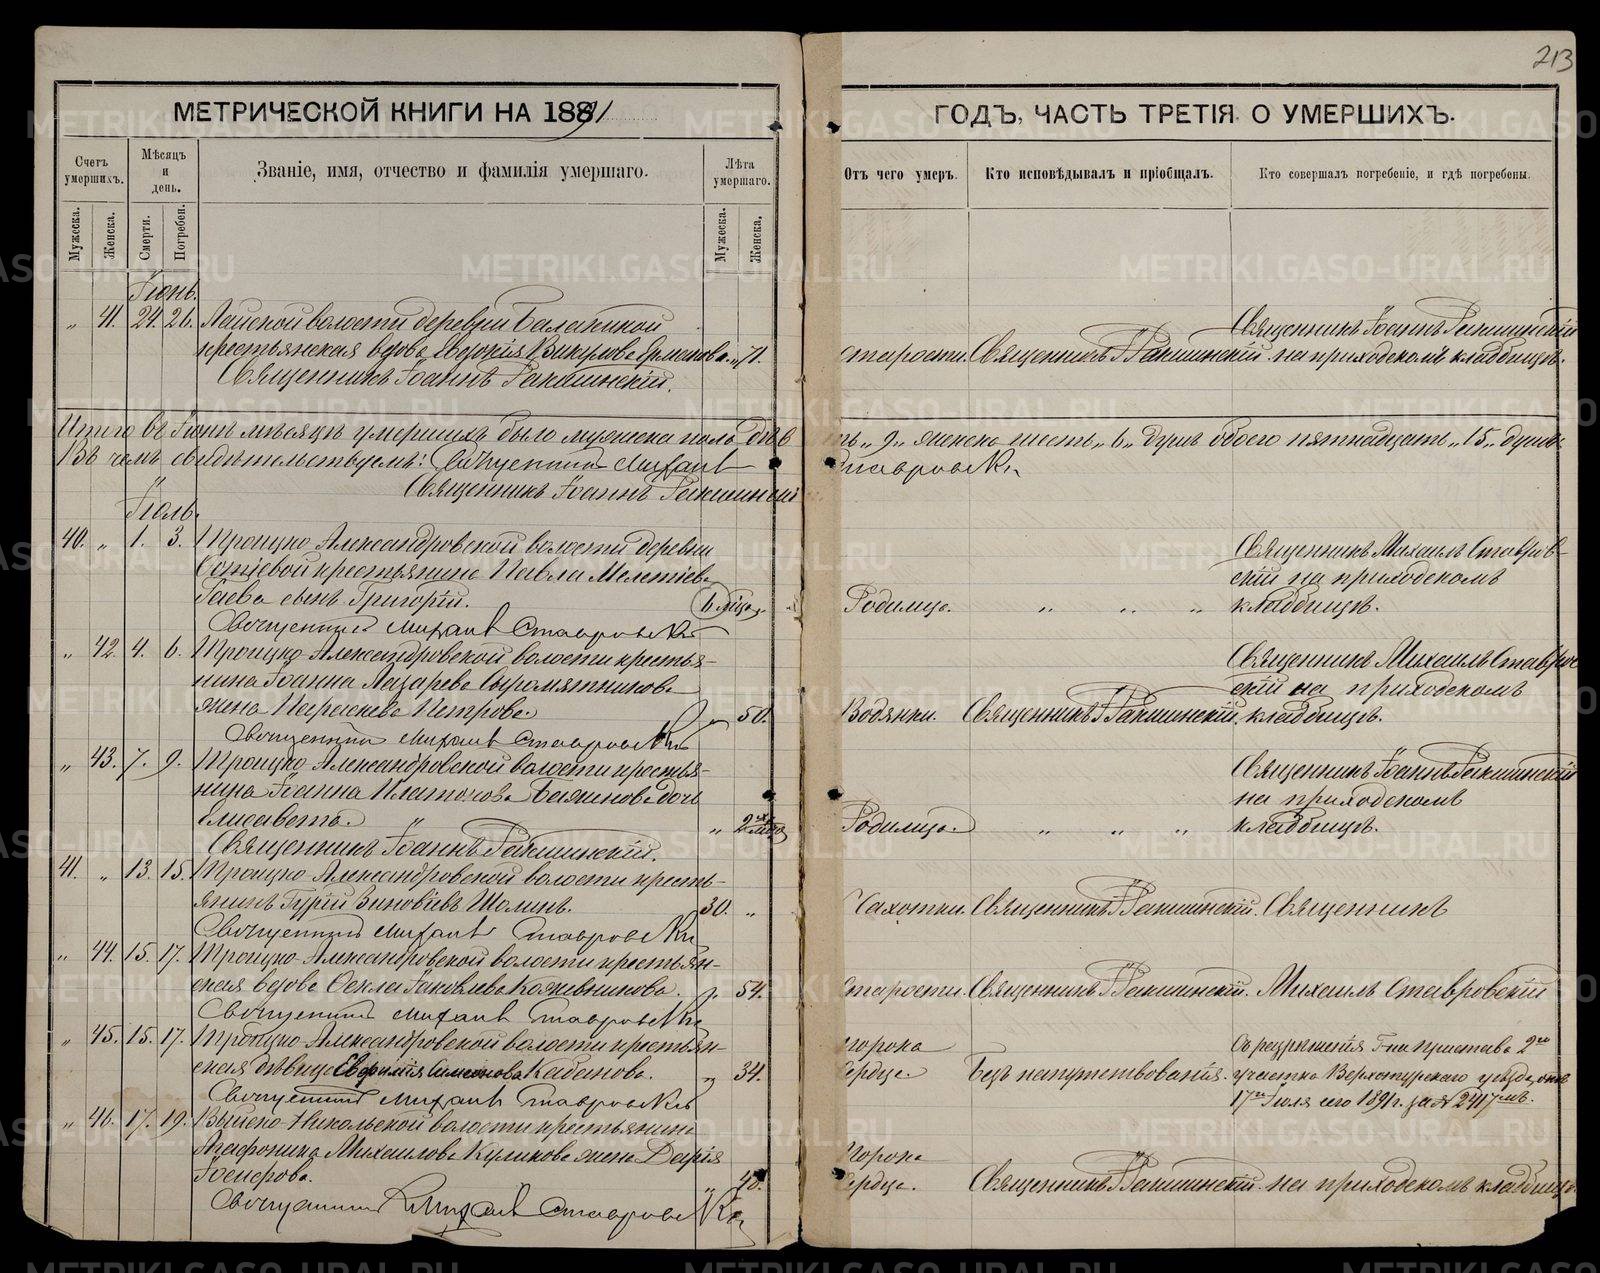 213
МЕТРИЧЕСКОЙ КНИГИ НА 1891
ГОДЪ, ЧАСТЬ ТРЕТІЯ О УМЕРШИХЪ.
Счетъ умершихъ.
Мѣсяцъ и день.
Званіе, имя, отчество и фамилія умершаго.
Лѣта умершаго.
Отъ чего умеръ.
Кто исповѣдывалъ и пріобщалъ.
Кто совершалъ погребеніе, и гдѣ погребены.
Мужеска.
Женска.
Смерти.
Погребен.
Мужеска.
Женска.
Іюнь.
„ 41. 24. 26. Лайской волости деревни Балакиной
крестьянская вдова Евдокія Викулова Ермакова. „ 71.
Священникъ Іоаннъ
старости. Священникъ
Священникъ Іоаннъ
на приходскомъ кладбищѣ.
Итого въ Іюнѣ мѣсяцѣ умершихъ было мужеска пола девять „9„ женска шесть „6„ душъ обоего пятнадцать „15„ душъ
Въ чемъ свидѣтельствуемъ: Священникъ Михаилъ Ставровскій
Священникъ Іоаннъ
Іюль.
40. „ 1. 3. Троицко-Александровской волости деревни
крестьянина Павла Мелетіева
Гаева сынъ Григорій. 6 мѣся.
Священникъ Михаилъ Ставровскій
Родимца. „ „ „
Священникъ Михаилъ Ставров-
скій на приходскомъ
кладбищѣ.
„ 42. 4. 6. Троицко-Александровской волости крестья-
нина Іоанна Лазарева Сыромятникова
жена Параскева Петрова. „ 50.
Священникъ Михаилъ Ставровскій
Водянки. Священникъ
Священникъ Михаилъ Ставров
скій на приходскомъ
кладбищѣ.
„ 43. 7. 9. Троицко-Александровской волости крестья-
нина Іоанна Платонова Баженова дочь
Елисавета. „ 2хъ мѣся
Священникъ Іоаннъ
Родимца. „ „ „
Священникъ Іоаннъ
на приходскомъ
кладбищѣ.
41. „ 13. 15. Троицко-Александровской волости кресть-
янинъ Гурій Зиновіевъ Шалинъ. 30. „
Священникъ Михаилъ Ставровскій
Чахотки. Священникъ
Священникъ
„ 44. 15. 17. Троицко-Александровской волости крестьян-
ская вдова Ѳекла Іаковлева Кожевникова. „ 54.
Священникъ Михаилъ Ставровскій
старости. Священникъ
Михаилъ Ставровскій
„ 45. 15. 17. Троицко-Александровской волости крестьян-
ская дѣвица Евфимія Симеонова Кабанова. „ 34.
Священникъ Михаилъ Ставровскій
порока
сердца. Безъ напутствованія.
Съ разрѣшенія Г-на Пристава 2го
участка Верхотурскаго уѣзда отъ
17го Іюля сего 1891 г. за № 2417мъ.
„ 46. 17. 19. Выйско-Никольской волости крестьянина
Агафоника Михаилова Куликова жена Дарія
Іосифова. „ 40.
Священникъ Михаилъ Ставровскій
порока
сердца. Священникъ
на приходскомъ кладбищѣ
METRIKI.GASO-URAL.RU